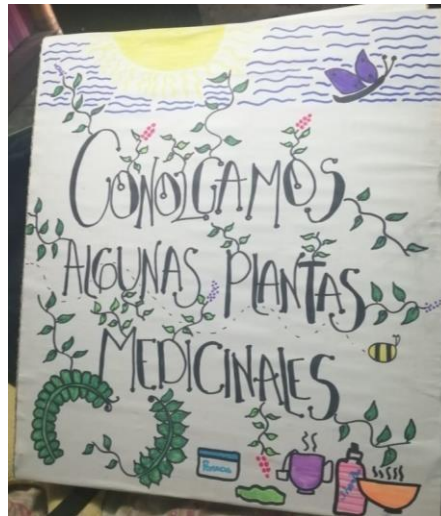 CONOZCAMOS
ALGUNAS PLANTAS
MEDICINALES
POMADA